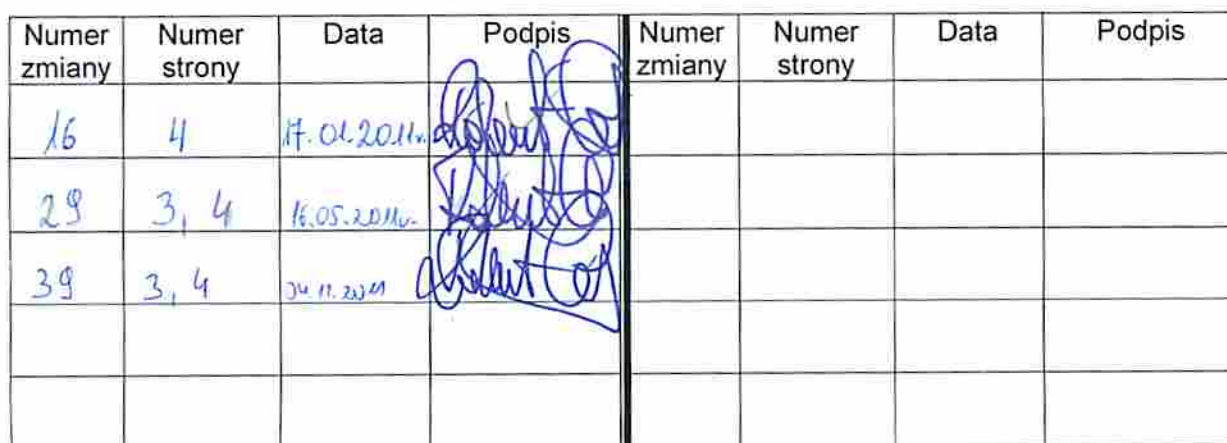 Numer zmiany Numer strony Data Podpis Numer zmiany Numer strony Data Podpis
16 4 17.01.2011r.
29 3, 4 16.05.2011r.
39 3, 4 04.11.2011